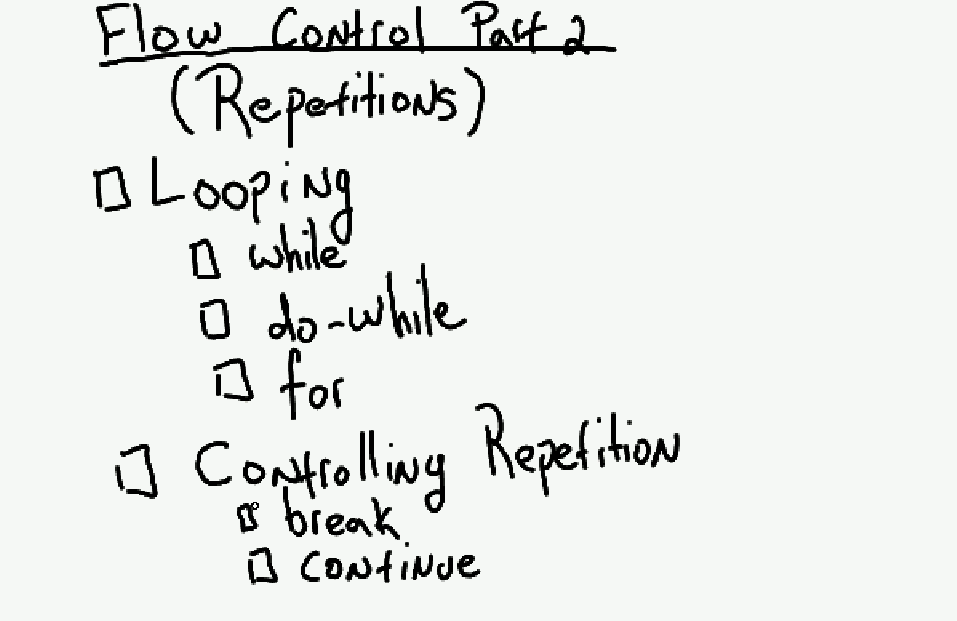 Flow Control Part 2
(Repetitions)
Looping
while
do-while
for
Controlling Repetition
break
continue